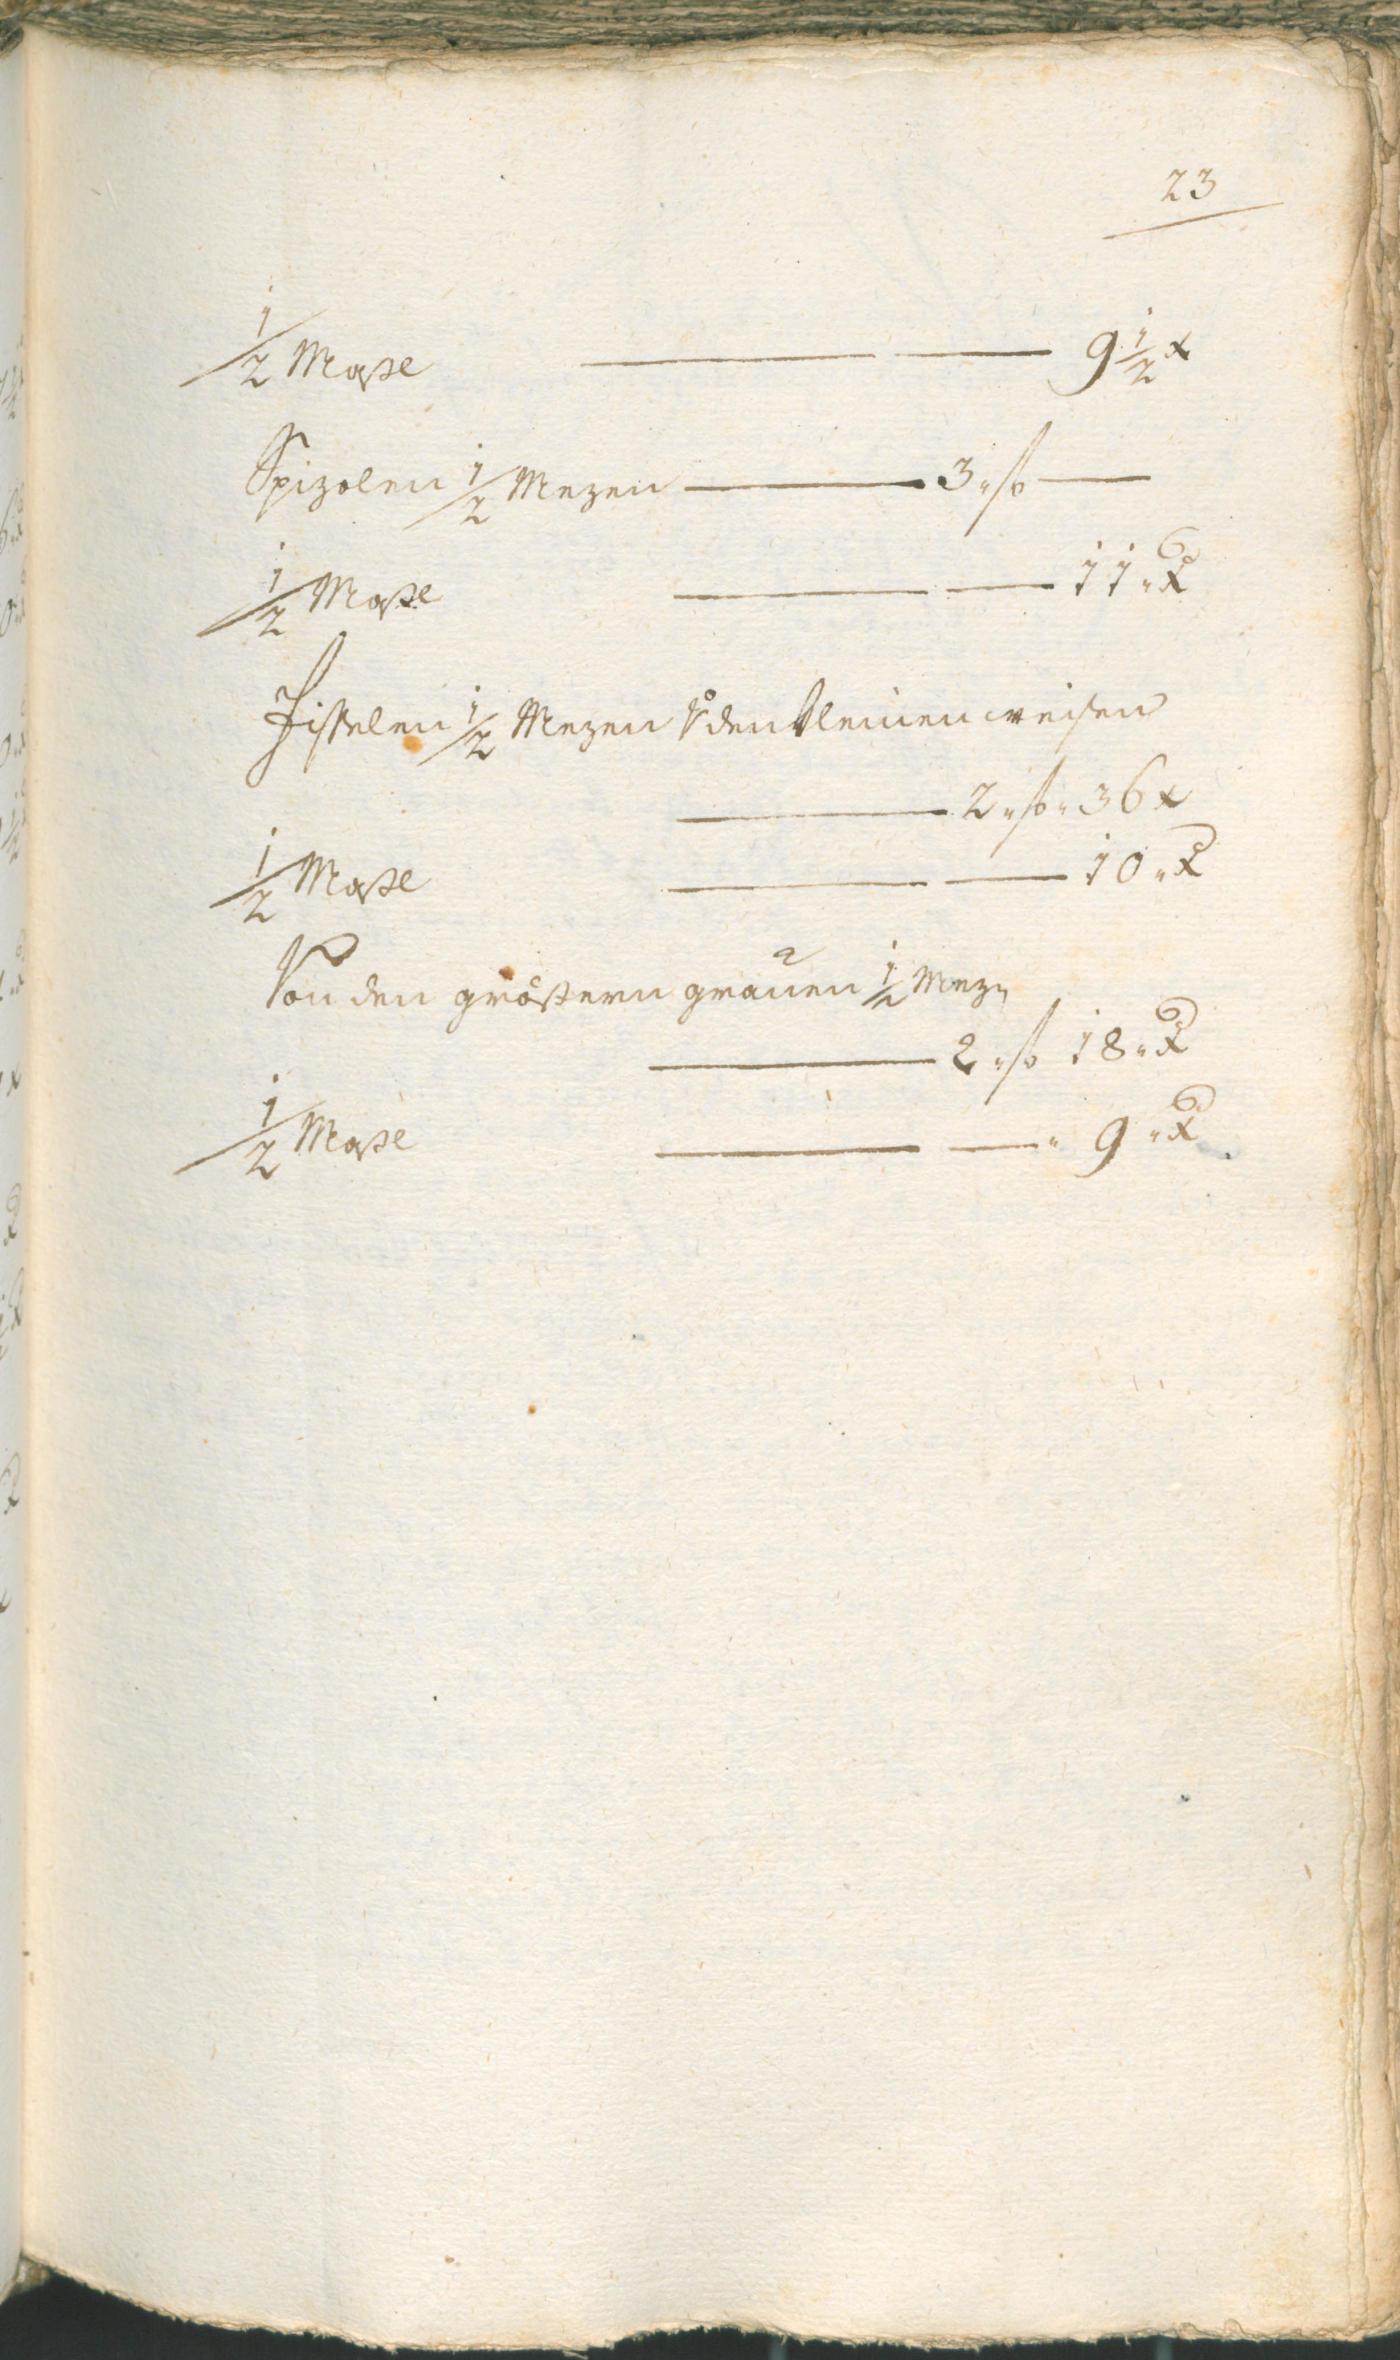 23
1/2 Maße — — 9 1/2 x
Spizolen 1/2 Mezen — 3 „ f —
1/2 Maße — — 11 „ x
Fisselen 1/2 Mezen V. den kleinen weisen
— 2 „ f „ 36 x
1/2 Maße — — 10 „ x
Von den größern grauen 1/2 Mez
— 2 „ f 18 „ x
1/2 Maße — — „ 9 „ x